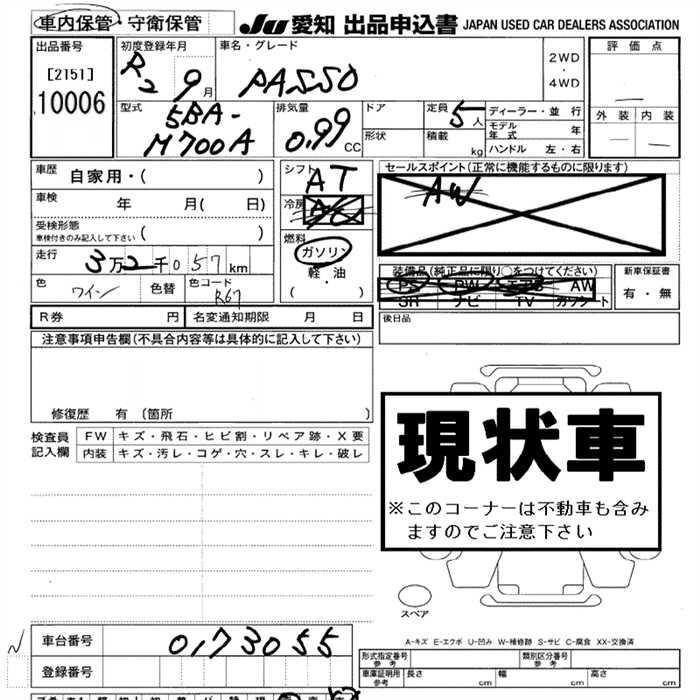 車内保管・守衛保管 JU 愛知 出品申込書 JAPAN USED CAR DEALERS ASSOCIATION
出品番号 初度登録年月 車名・グレード 評価点
[2151] R2 9月 PASSO 2WD・4WD
10006
型式 排気量 ドア 定員 5人 ディーラー・並行 外装 内装
5BA-M700A 0.99CC 形状 積載 kg モデル年式 年
ハンドル 左・右
車歴 自家用・( )
シフト AT
セールスポイント(正常に機能するものに限ります)
AW
車検 年 月( 日)
冷房 AC
受検形態
車検付きのみ記入して下さい ( )
燃料 ガソリン・軽油 ( )
走行 3万2千057km
装備品(純正品に限り○をつけてください) 新車保証書
色 ワイン 色替 色コード R67
PS PW エアB AW 有・無
SR ナビ TV カワシート
R券 円 名変通知期限 月 日
後日品
注意事項申告欄(不具合内容等は具体的に記入して下さい)
修復歴 有(箇所 )
現状車
※このコーナーは不動車も含みますのでご注意下さい
検査員記入欄 FW キズ・飛石・ヒビ割・リペア跡・X要
内装 キズ・汚レ・コゲ・穴・スレ・キレ・破レ
スペア
A-キズ E-エクボ U-凹み W-補修跡 S-サビ C-腐食 XX-交換済
車台番号 0173055
登録番号
形式指定番号 参考 類別区分番号 参考
車庫証明用 参考 長さ cm 幅 cm 高さ cm